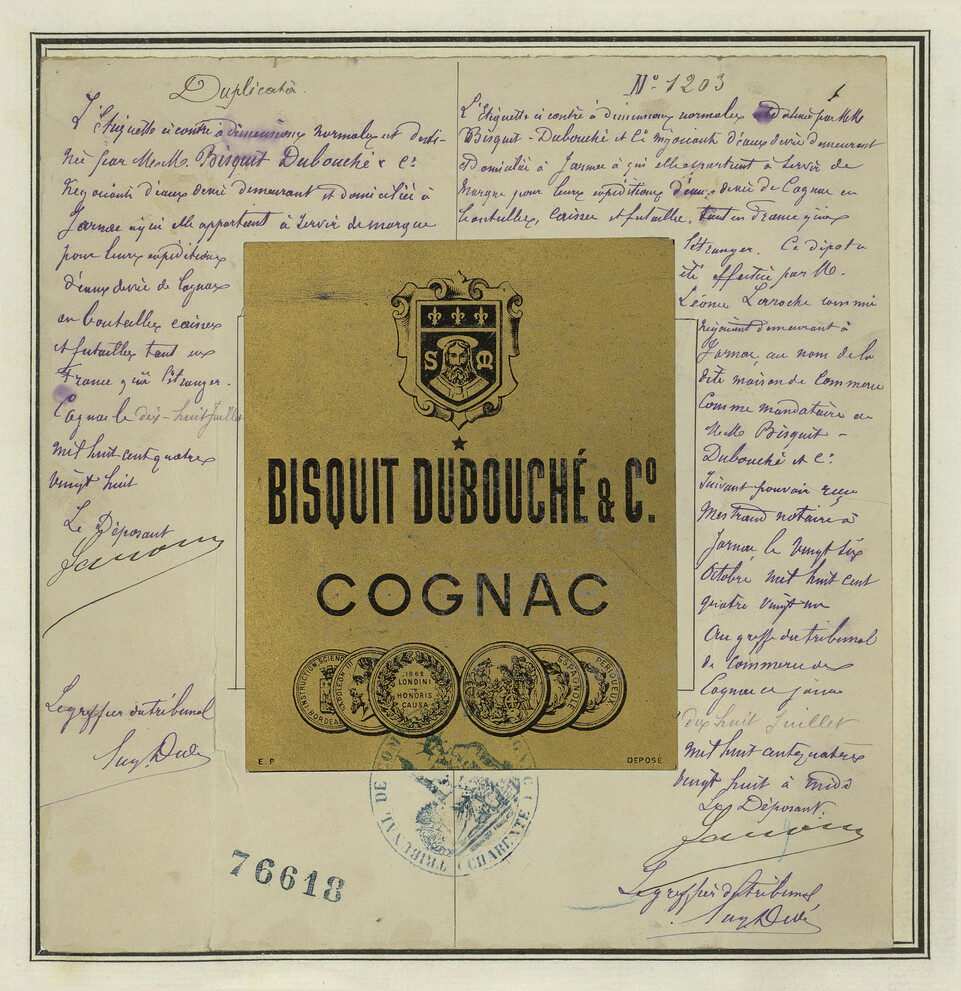 Duplicata.
L'Etiquette ci contre à dimensions normales est desti-
née par M.M. Bisquit Dubouché & Cie
Negociants d'eaux devie demeurant et domiciliés à
Jarnac à qui elle appartient à servir de marque
pour leurs expéditions
d'eaux devie de Cognac
en bouteilles caisses
et futailles tant en
France qu'à l'étranger.
Cognac le dix-huit Juillet
mil huit cent quatre
vingt huit
Le Déposant
Le greffier du tribunal
No 1203
L'Etiquette ci contre à dimensions normales est destinée par MM
Bisquit-Dubouché et Cie négociants d'eaux devie demeurant
et domiciliés à Jarnac à qui elle appartient à servir de
Marque pour leurs expéditions d'eaux devie de Cognac en
bouteilles, caisses et futailles, tant en France qu'à
l'étranger. Ce dépôt a
été effectué par M.
Léonce Larroche commis
négociant demeurant à
Jarnac au nom de la
dite maison de Commerce
Comme mandataire de
M.M. Bisquit-
Dubouché et Cie
suivant pouvoir reçu
Mestraud notaire à
Jarnac le vingt six
Octobre mil huit cent
quatre vingt un
Au greffe du tribunal
de Commerce de
Cognac ce jour
dix huit Juillet
mil huit cent quatre
vingt huit à midi
Le Déposant
Le greffier du tribunal
S M
BISQUIT DUBOUCHÉ & Co.
COGNAC
INSTRUCTION SCIEN
BORDEA
NAPOLEON III
1862
LONDINI
HONORIS
CAUSA
ESPAGNOLE
PERIGUEUX
E.P
DEPOSÉ
TRIBUNAL DE COM
CHARENTE
76618